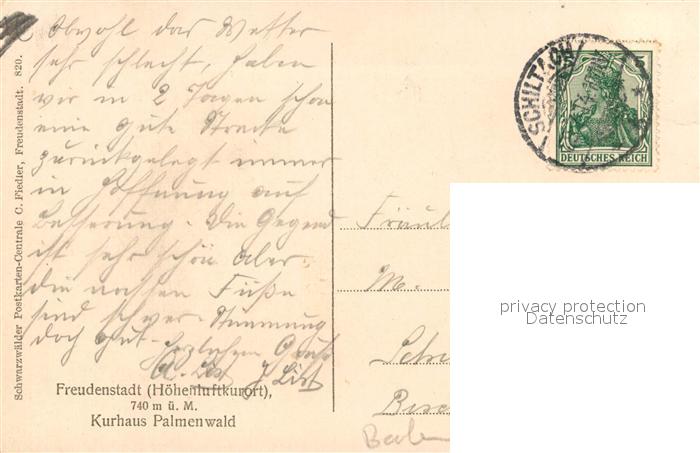 Obwohl das Wetter
sehr schlecht, haben
wir in 2 Tagen schon
eine gute Strecke
zurückgelegt immer
in Hoffnung auf
Besserung. Die Gegend
ist sehr schön aber
die nassen Füße
sind schwer. Stimmung
doch gut. Herzlichen Gruß
A. List J List
Freudenstadt (Höhenluftkurort),
740 m ü. M.
Kurhaus Palmenwald
Schwarzwälder Postkarten-Centrale C. Fiedler, Freudenstadt. 820.
SCHILTACH
5
DEUTSCHES REICH
Fräul
M.
privacy protection
Datenschutz